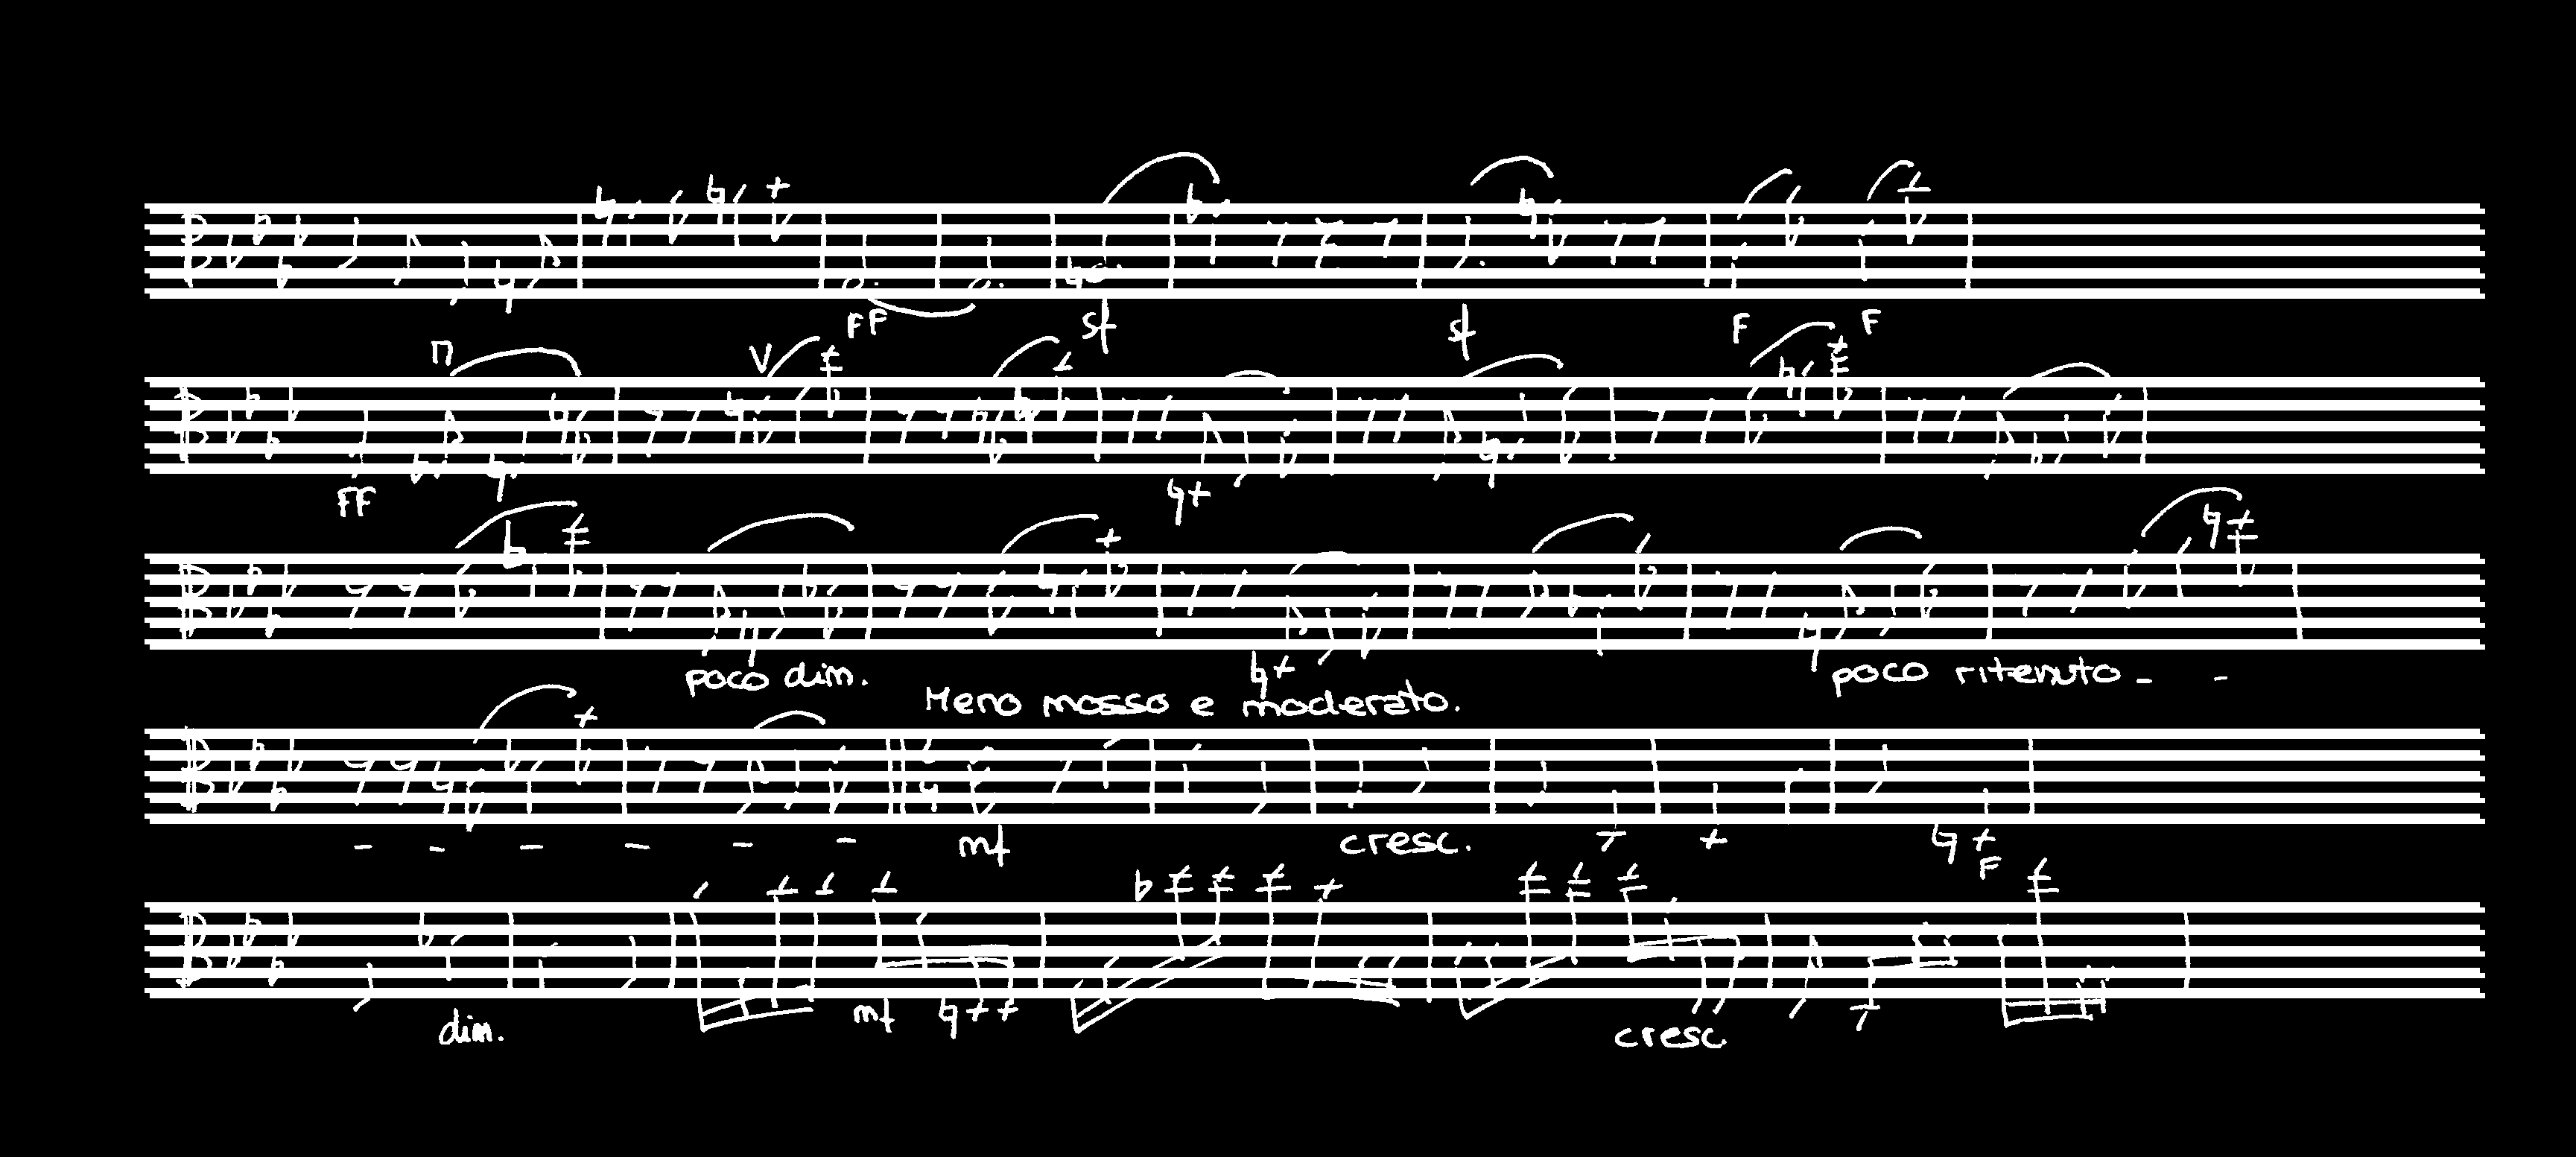 FF sf sf F F
FF
poco dim. poco ritenuto - -
Meno mosso e moderato.
- - - - - -
mf cresc. F
dim. mf cresc.